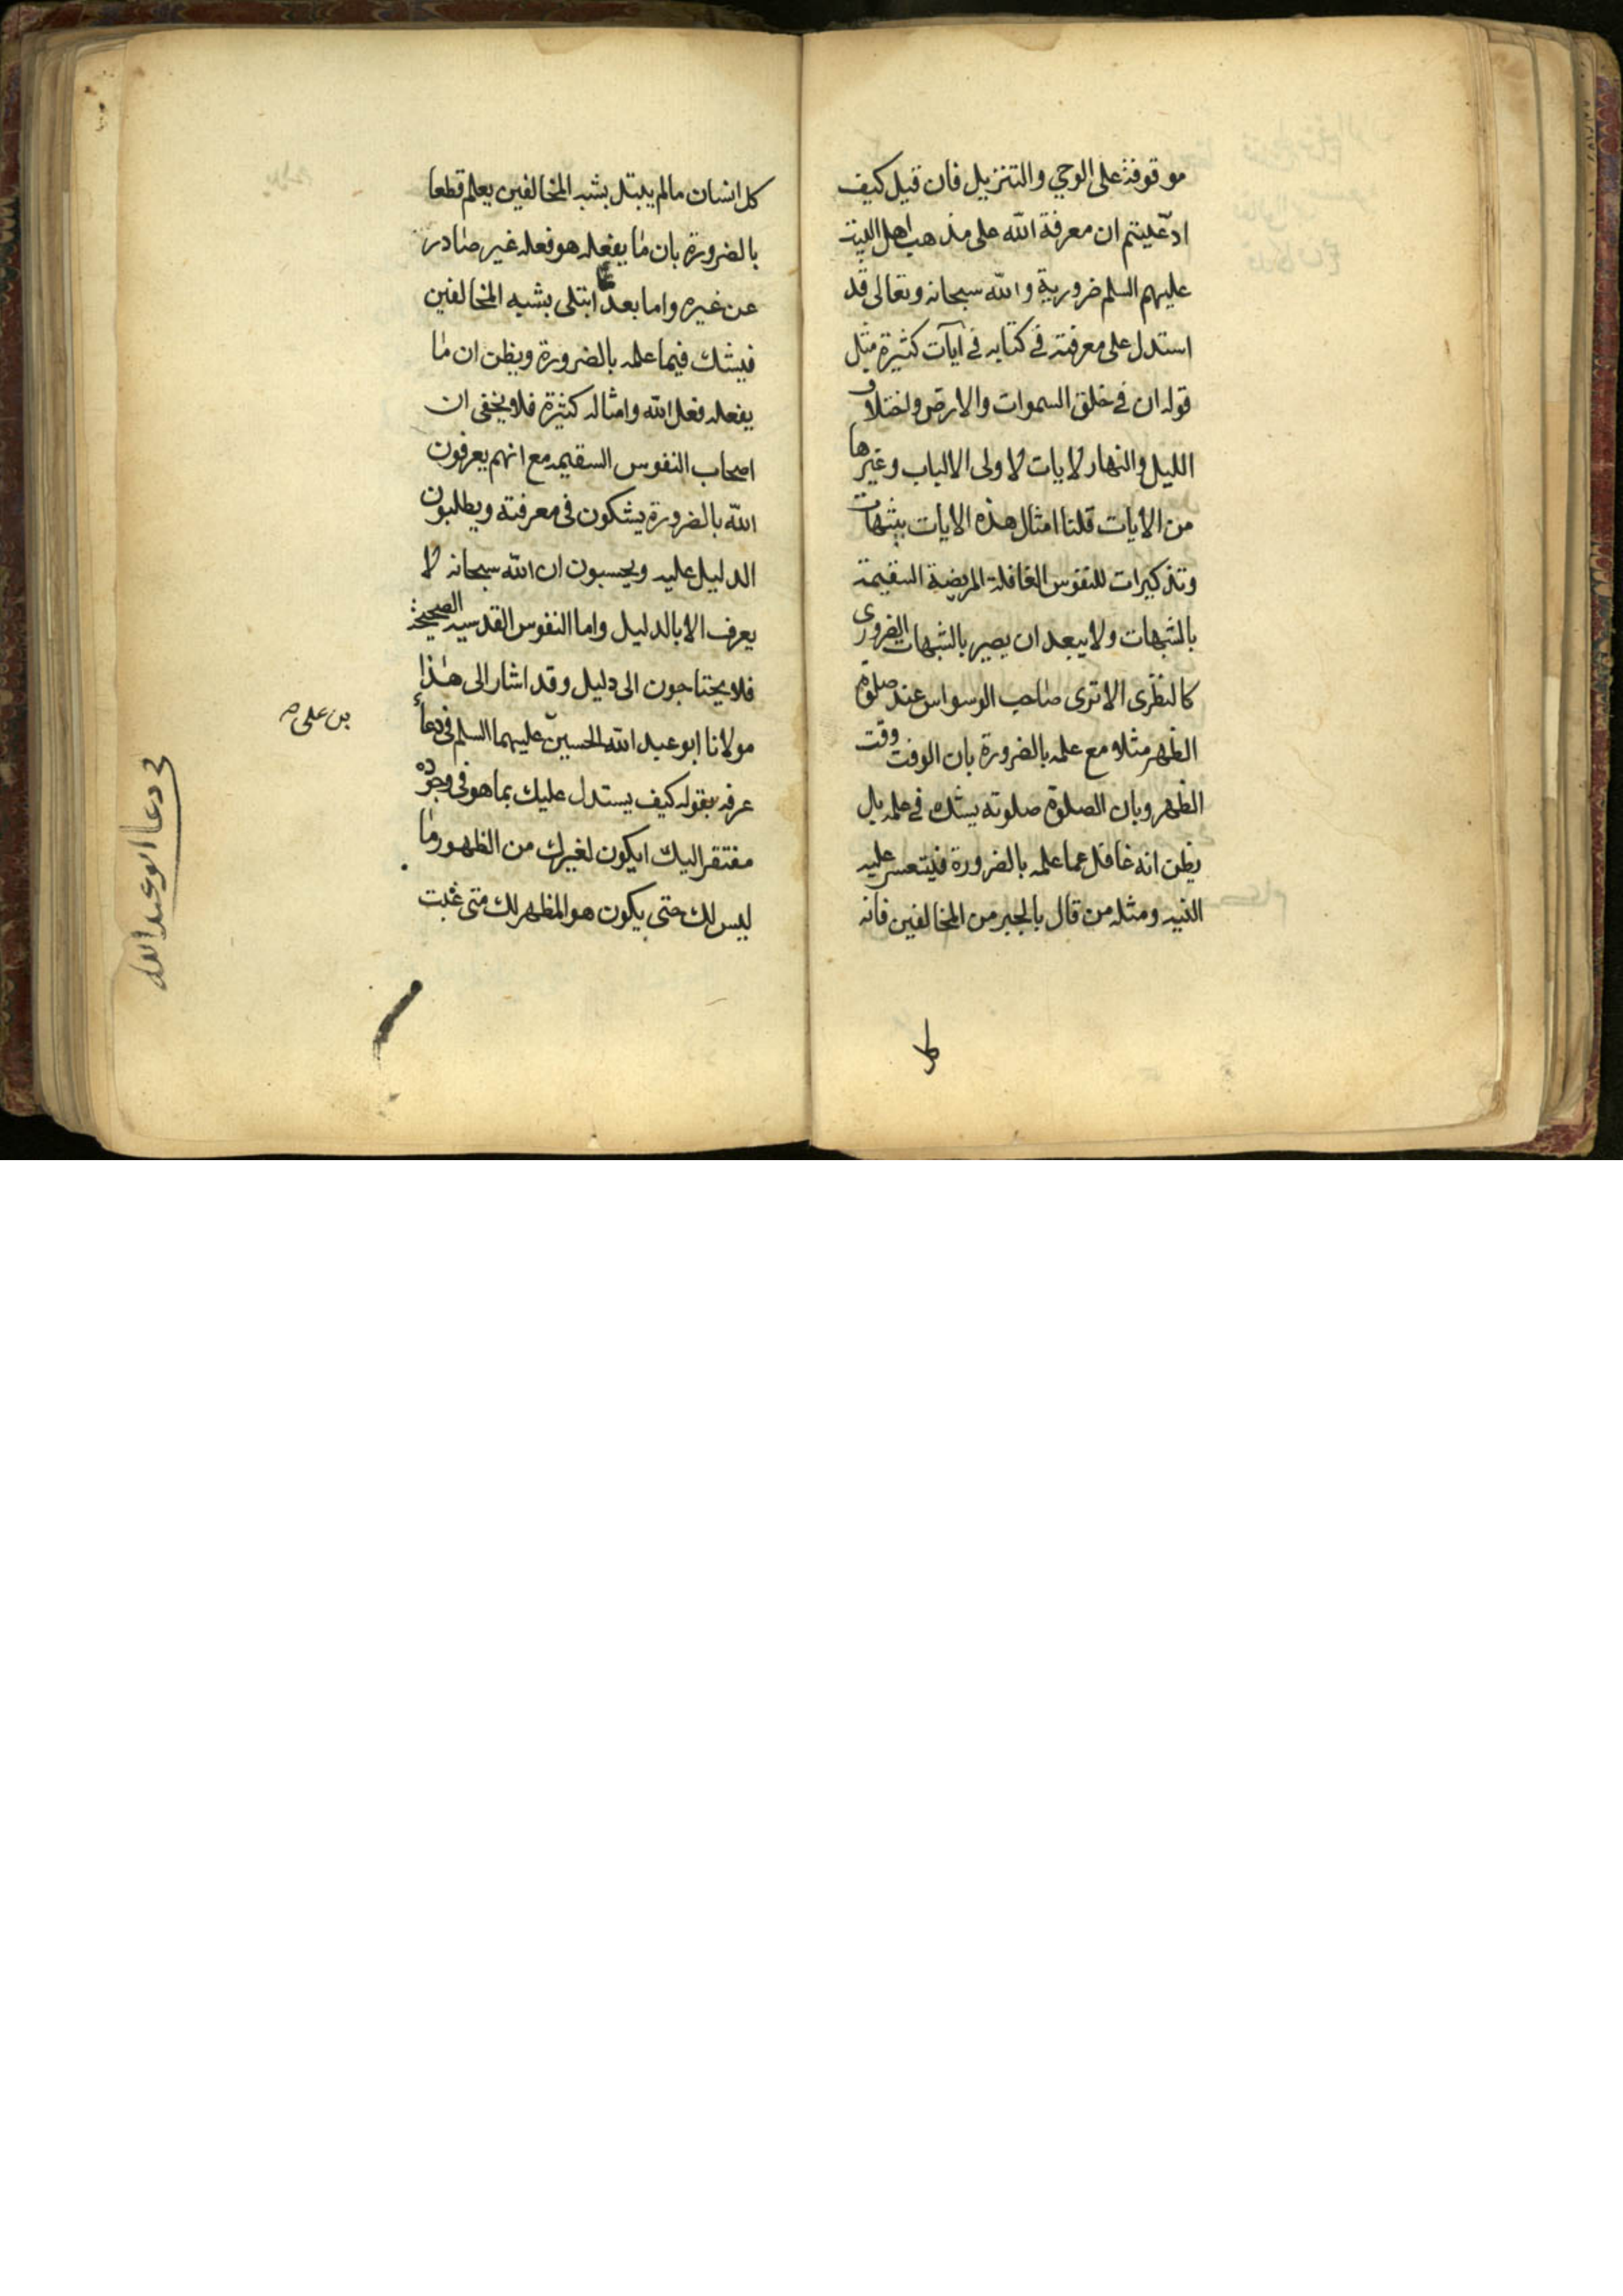 موقوفة على الوحي والتنزيل فان قيل كيف
ادّعيتم ان معرفة الله على مذهب اهل البيت
عليهم السلم ضرورية والله سبحانه وتعالى قد
استدل على معرفته في كتابه في آيات كثيرة مثل
قوله ان في خلق السموات والارض واختلاف
الليل والنهار لايات لاولى الالباب وغيرها
من الايات قلنا امثال هذه الايات
وتذكيرات للنفوس الغافلة المريضة السقيمة
بالشبهات ولا يبعد ان يصير بالشبهات الضرورى
كالنظرى الا ترى صاحب الوسواس عند صلوة
الظهر مثلا مع علمه بالضرورة بان الوقت وقت
الظهر وبان الصلوة صلوته يشك في علمه بل
يظن انه غافل عما علمه بالضرورة فيتعسر عليه
النيه ومثله من قال بالجبر من المخالفين فانه
كل
كل انسان مالم يبتل بشبه المخالفين يعلم قطعا
بالضرورة بان ما يفعله هو فعله غير صادر
عن غيره واما بعد ما ابتلى بشبه المخالفين
فيشك فيما علمه بالضرورة ويظن ان ما
يفعله فعل الله وامثاله كثيرة فلا يخفى ان
اصحاب النفوس السقيمه مع انهم يعرفون
الله بالضرورة يشكون فى معرفته ويطلبون
الدليل عليه ويحسبون ان الله سبحانه لا
يعرف الا بالدليل واما النفوس القدسيه الصحيحة
فلا يحتاجون الى دليل وقد اشار الى هذا
مولانا ابو عبد الله الحسين عليهما السلم فى دعاء
عرفه بقوله كيف يستدل عليك بما هو فى وجوده
مفتقر اليك ايكون لغيرك من الظهور ما
ليس لك حتى يكون هو المظهر لك متى غبت
بن على
فى دعا ابو عبد الله